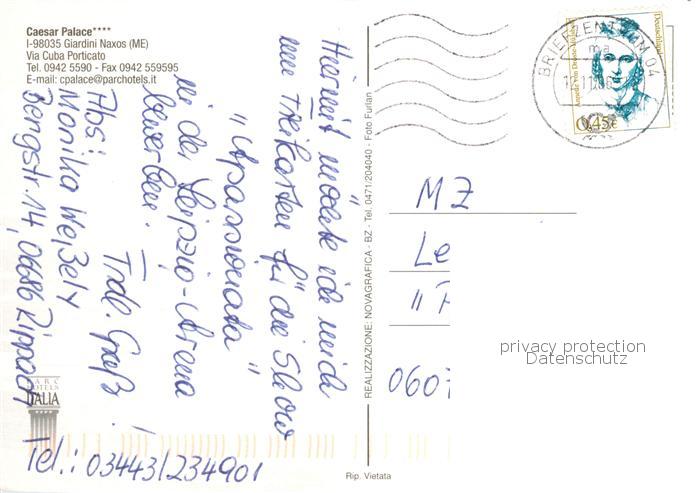 Caesar Palace****
I-98035 Giardini Naxos (ME)
Via Cuba Porticato
Tel. 0942 5590 - Fax 0942 559595
E-mail: cpalace@parchotels.it
Hiermit möchte ich mich
um Freikarten für die Show
"Apassionata"
in der Leipzig-Arena
bewerben.
Frdl. Gruß!
Abs:
Monika Weßely
Bergstr. 14, 06686 Rippach
Tel.: 034443/234901
PARC
HOTELS
ITALIA
REALIZZAZIONE: NOVAGRAFICA - BZ - Tel. 0471/204040 - Foto Furlan
Rip. Vietata
BRIEFZENTRUM 04
ma
Deutschland
0,45€
MZ
Le
0607
privacy protection
Datenschutz